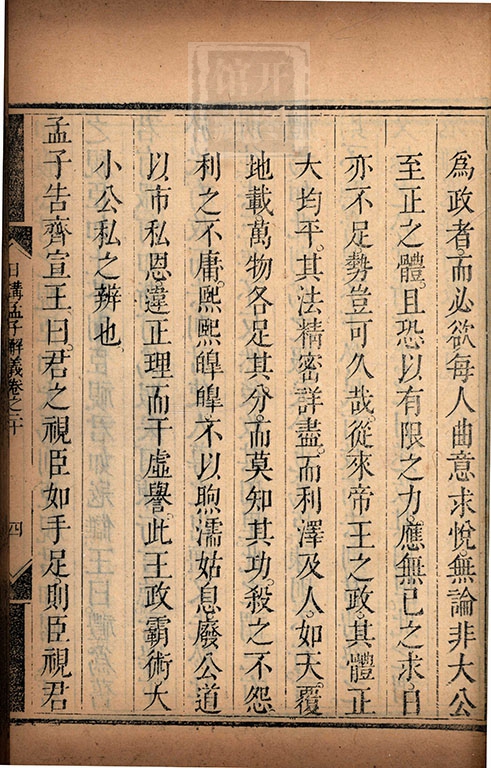 爲政者而必欲每人曲意求悅無論非大公
至正之體且恐以有限之力應無已之求日
亦不足勢豈可久哉從來帝王之政其體正
大均平其法精密詳盡而利澤及人如天覆
地載萬物各足其分而莫知其功殺之不怨
利之不庸熈熈皡皡不以煦濡姑息廢公道
以市私恩違正理而干虛譽此王政霸術大
小公私之辨也
孟子告齊宣王曰君之視臣如手足則臣視君
日講孟子解義卷之二十
四